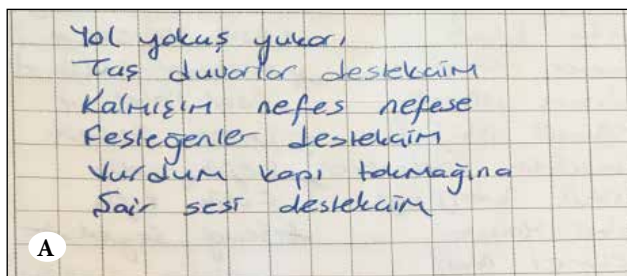 Yol yokuş yukarı
Taş duvarlar destekçim
Kalmışım nefes nefese
Fesleğenler destekçim
Vurdum kapı tokmağına
Şair sesi destekçim
A